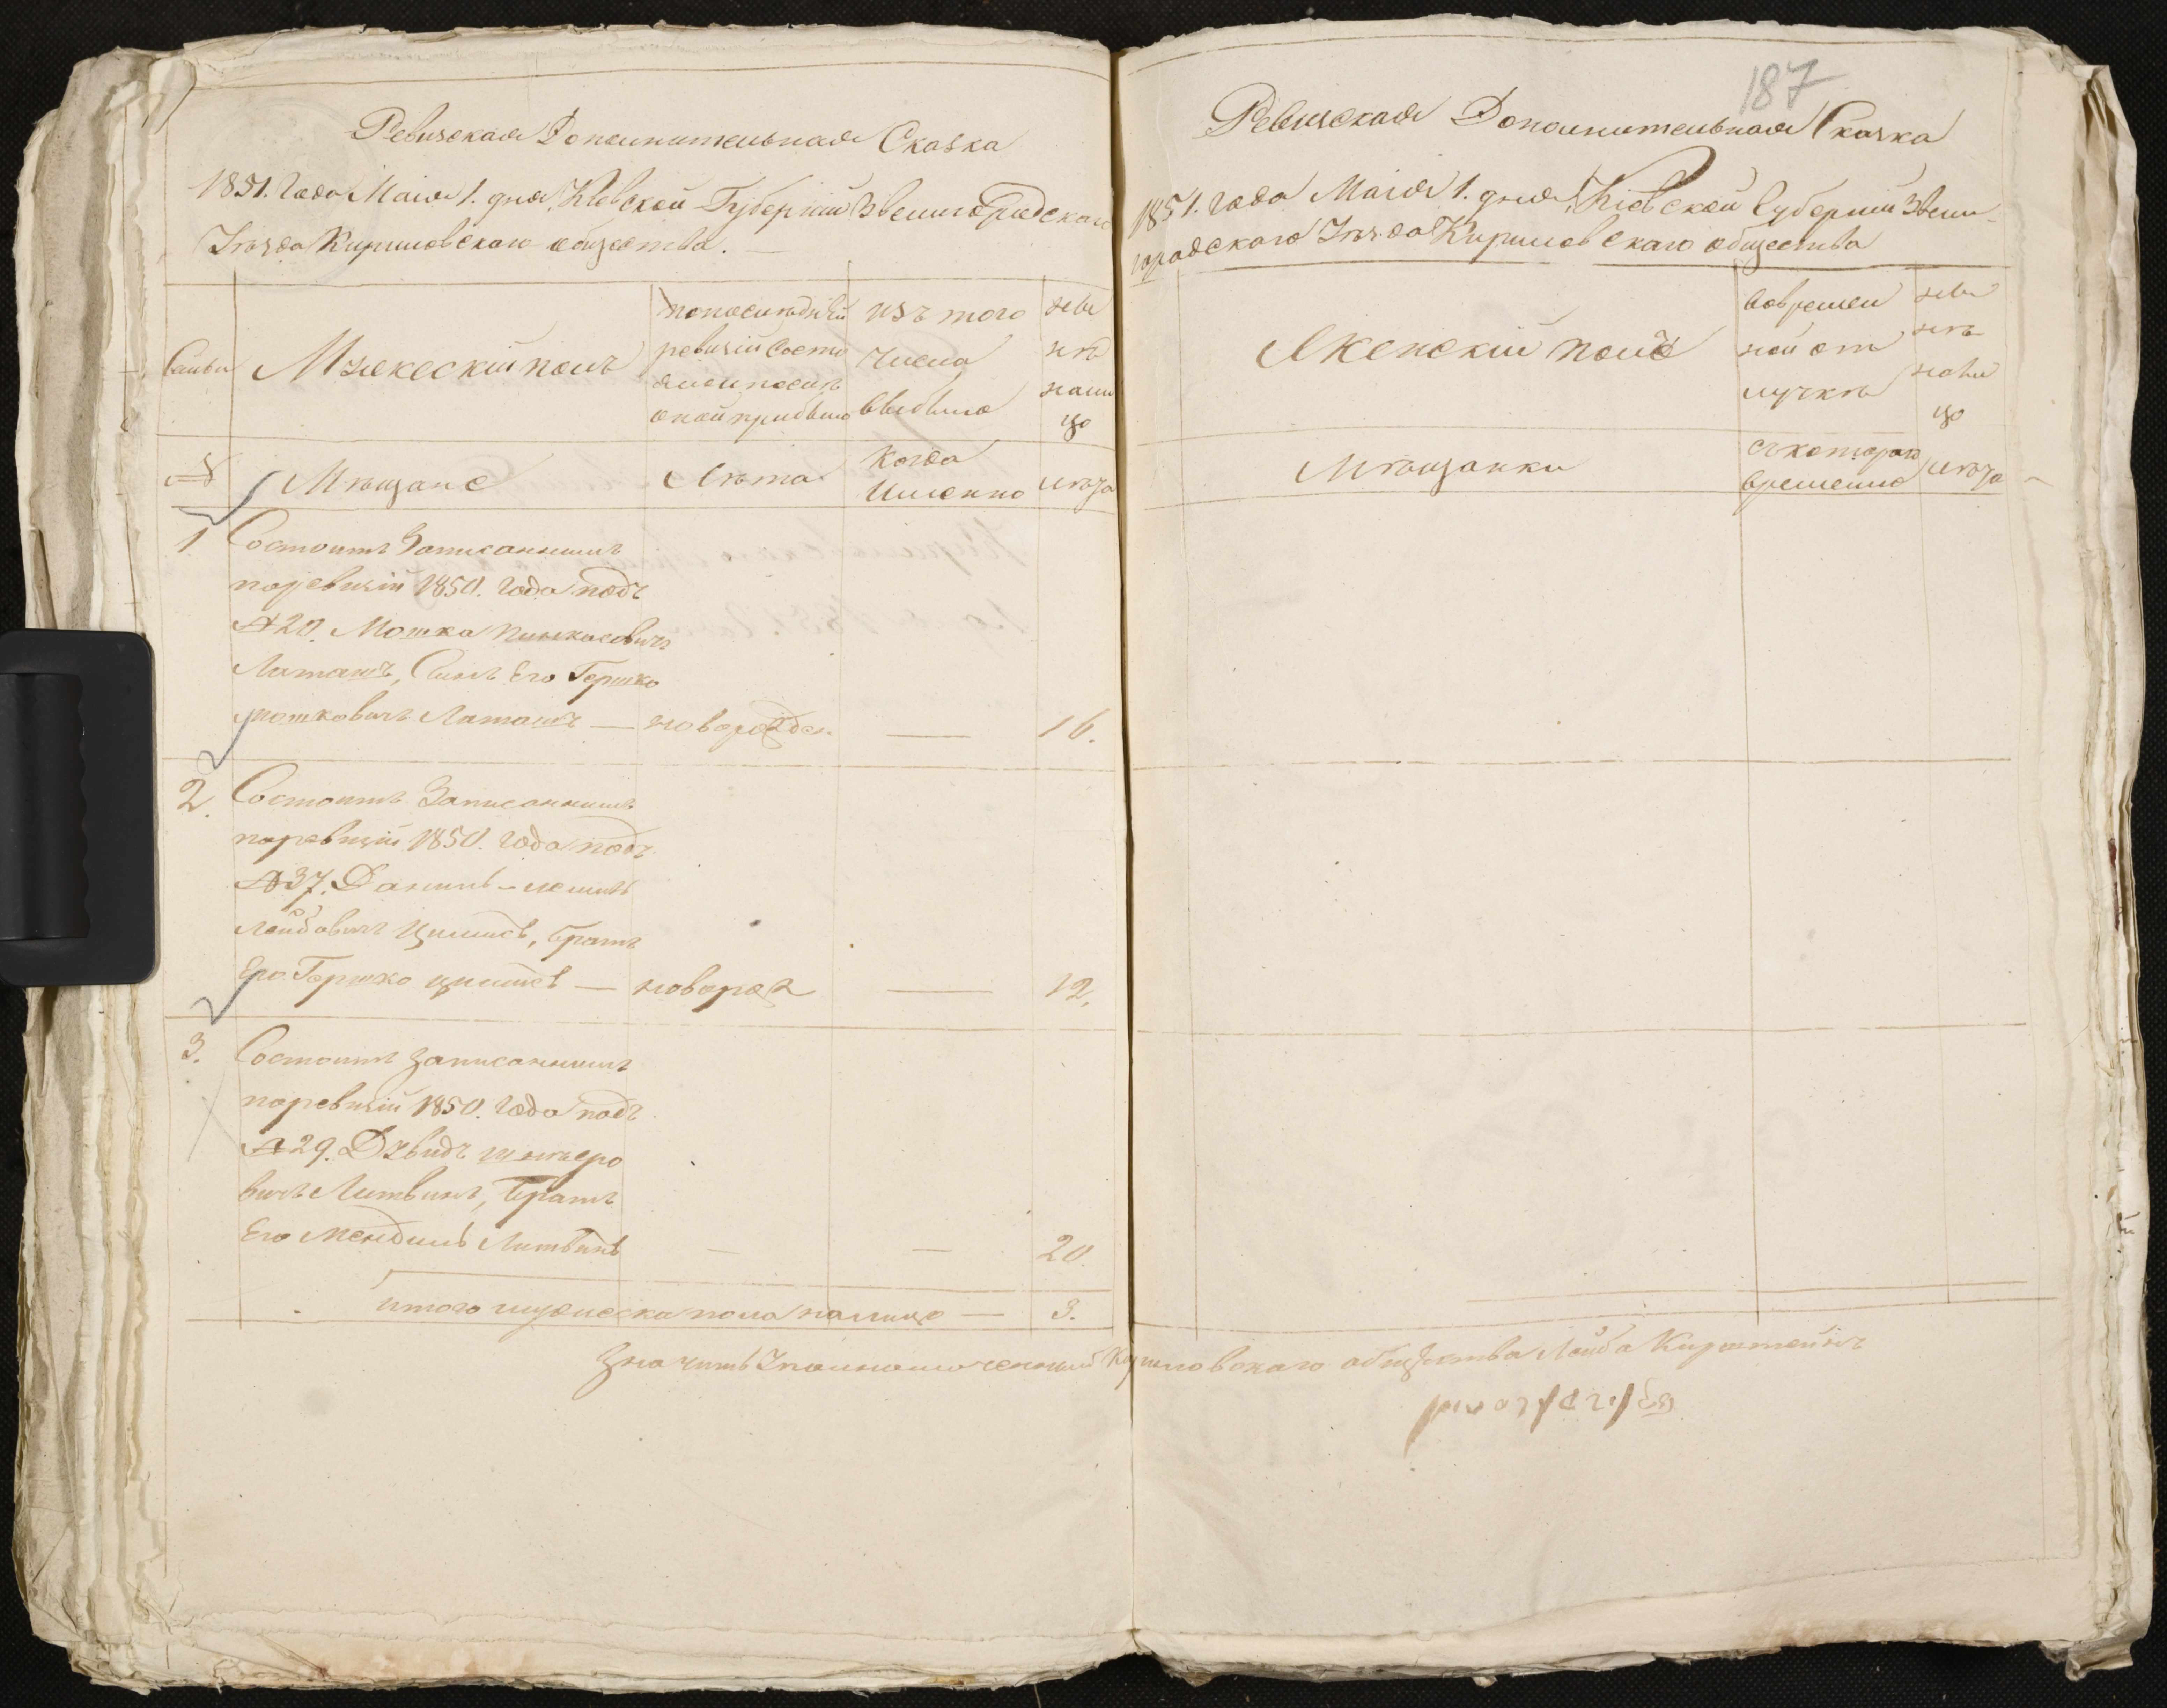 Ревизская Дополнительная Сказка
1851. Года Маия 1. дня, Кіевской Губерніи Звенигородскаго
Уѣзда Кириловскаго общества.
Мужескій полъ
по последней
ревизіи состо
яло и послѣ
оной прибыло
изъ того
числа
выбыло
ны
нѣ
на ли
цо
№
Мѣщане
Лѣта
Когда
Именно
лѣта
1
Состоитъ Записаннымъ
по ревизіи 1850. года подъ
№ 20. Мошка Пинкасовичъ
Латашъ, Сынъ Его Гершко
Мошковичъ Латашъ — новорожден — 16.
2.
Состоитъ Записаннымъ
по ревизіи 1850. года подъ
№ 37. Данилъ-
Лейбовичъ братъ
Его Гершко — новорож — 12.
3.
Состоитъ записаннымъ
по ревизіи 1850. года подъ
№ 29. Дувидъ
вичъ Литвинъ, братъ
Его Мендиль Литвинъ — — 20.
итого мужеска пола налицо — 3.
187
Ревизская Дополнительная Сказка
1851. года Маия 1. дня, Кіевской Губерніи Звени-
городскаго Уѣзда Кириловскаго общества
Женскій полъ
во времен
ной от
лучкѣ
ны
нѣ
на ли
цо
Мѣщанки
съ котораго
времени
лѣта
Значитъ Уполномоченный Кириловскаго общества Лейба Кирштейнъ